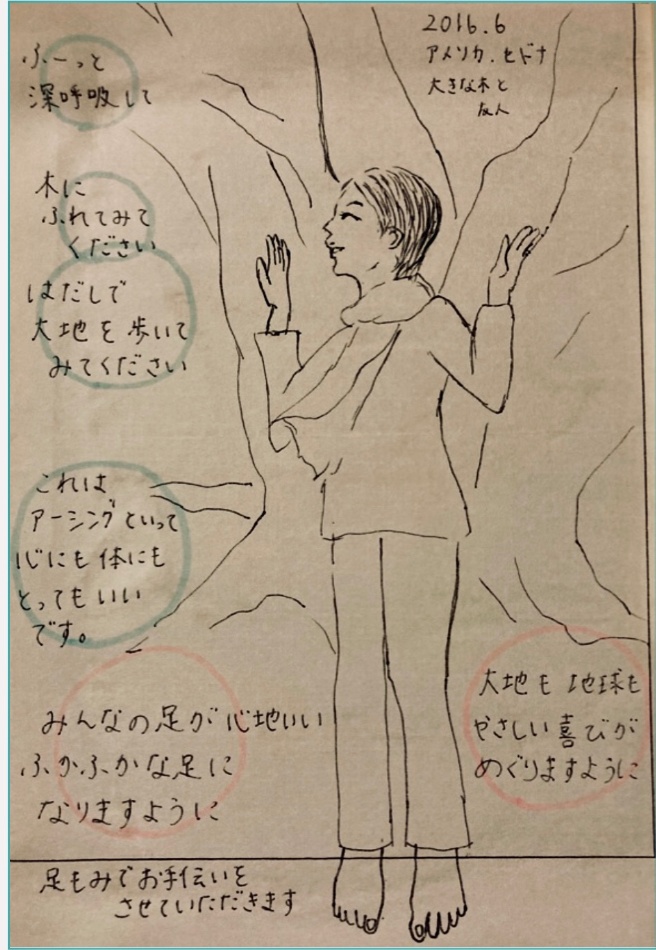 2016.6
アメリカ.セドナ
大きな木と
友人
ふーっと
深呼吸して
木に
ふれてみて
ください
はだしで
大地を歩いて
みてください
これは
アーシングといって
心にも体にも
とってもいい
です。
みんなの足が心地いい
ふかふかな足に
なりますように
大地も地球も
やさしい喜びが
めぐりますように
足もみでお手伝いを
させていただきます